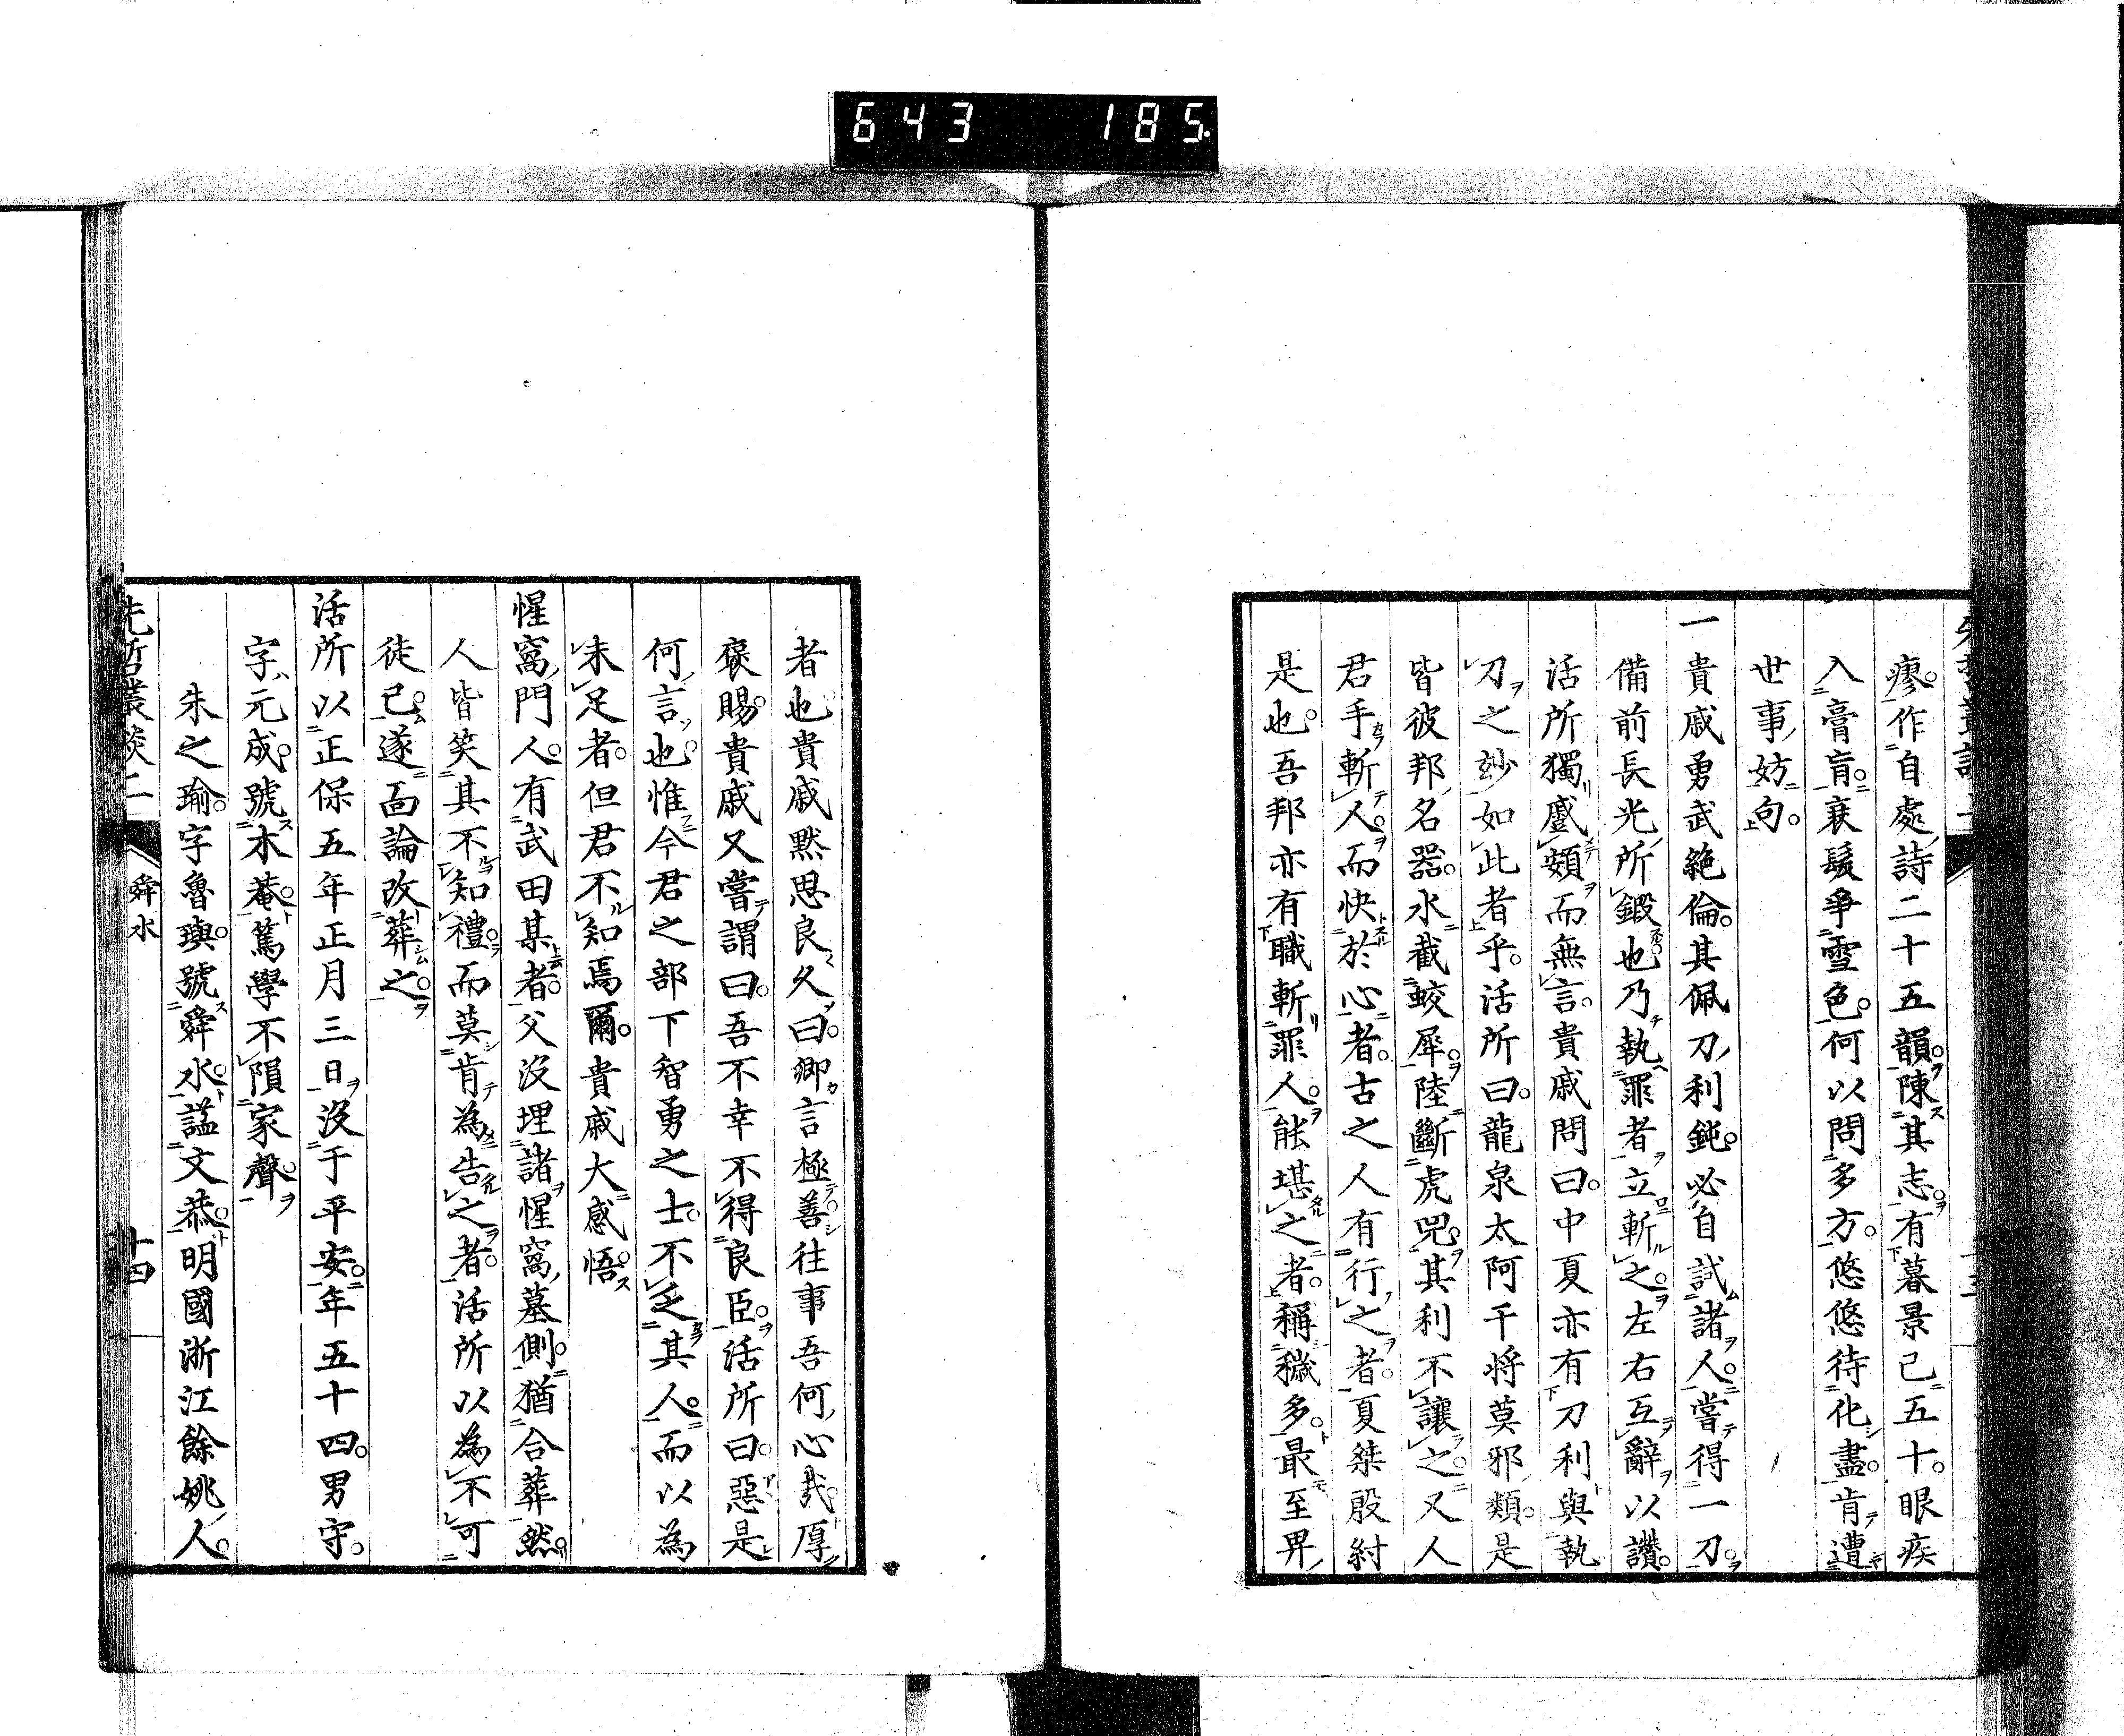 643 185.
瘳作自處詩二十五韻陳其志有暮景已五十眼疾
入膏肓衰髮爭雪色何以問多方悠悠待化盡肯遭
世事妨句
一貴戚勇武絶倫其佩刀利鈍必自試諸人嘗得一刀
備前長光所鍛也乃執罪者立斬之左右互辭以讚
活所獨蹙頞而無言貴戚問曰中夏亦有刀利與執
刀之妙如此者乎活所曰龍泉太阿干將莫邪類是
皆彼邦名器水截蛟犀陸斷虎兕其利不讓之又人
君手斬人而快於心者古之人有行之者夏桀殷紂
是也吾邦亦有職斬罪人能堪之者稱穢多最至卑
者也貴戚默思良久曰卿言極善往事吾何心哉厚
褒賜貴戚又嘗謂曰吾不幸不得良臣活所曰惡是
何言也惟今君之部下智勇之士不乏其人而以為
未足者但君不知焉爾貴戚大感悟
惺窩門人有武田某者父沒埋諸惺窩墓側猶合葬然
人皆笑其不知禮而莫肯為告之者活所以為不可
徒已遂面論改葬之
活所以正保五年正月三日沒于平安年五十四男守
字元成號木菴篤學不隕家聲
朱之瑜字魯璵號舜水諡文恭明國浙江餘姚人
先哲叢談二 舜水 十四